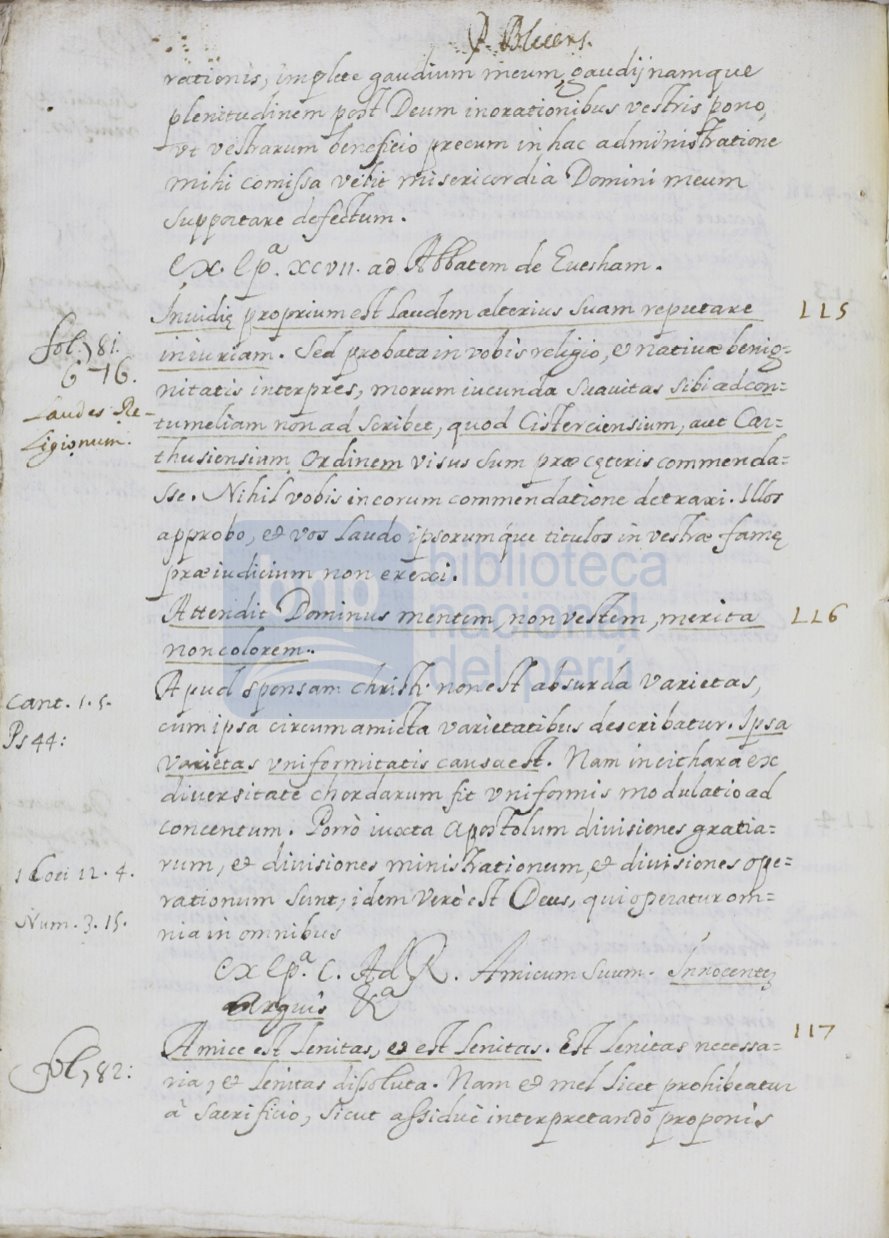 P. Blesens.
rationis, implete gaudium meum, gaudij namque
plenitudinem post Deum inorationibus vestris pono,
vt vestrarum beneficio precum in hac administratione
mihi comissa velit misericordia Domini meum
supportare defectum.
Ex. Epª. XCVII. ad Abbatem de Euesham.
Inuidię proprium est laudem alterius suam reputare 115
fol. 81.
iniuriam. Sed probata in vobis religio, & natiuæ benig-
nitatis interpres, morum iucunda suauitas sibi ad con-
Laudes Re-
ligionum.
tumeliam non ad scribet, quod Cisterciensium, aut Car-
thusiensium Ordinem visus sum præ cęteris commenda-
sse. Nihil vobis in eorum commendatione detraxi. Illos
approbo, & vos laudo ipsorumque titulos in vestræ famę
præiudicium non erexi.
biblioteca
nacional
del perú
Attendit Dominus mentem, non vestem, merita 116
non colorem.
Apud sponsam christi non est absurda varietas,
Cant. 1. 5.
Ps 44:
cum ipsa circumamicta varietatibus describatur. Ipsa
varietas uniformitatis causa est. Nam in cithara ex
diuersitate chordarum fit vniformis modulatio ad
concentum. Porrò iuxta Apostolum diuisiones gratia-
rum, & diuisiones ministrationum, & diuisiones ope-
1 Cori 12. 4.
rationum sunt, idem verò est Deus, qui operatur om-
Num. 3. 15.
nia in omnibus
ex Epª. C. Ad R. Amicum suum. Innocentę
arguis &ª
117
Amice est lenitas, & est lenitas. Est lenitas necessa-
fol, 82:
ria, & lenitas dissoluta. Nam & mel licet prohibeatur
à sacrificio, sicut assiduè interpretando proponis